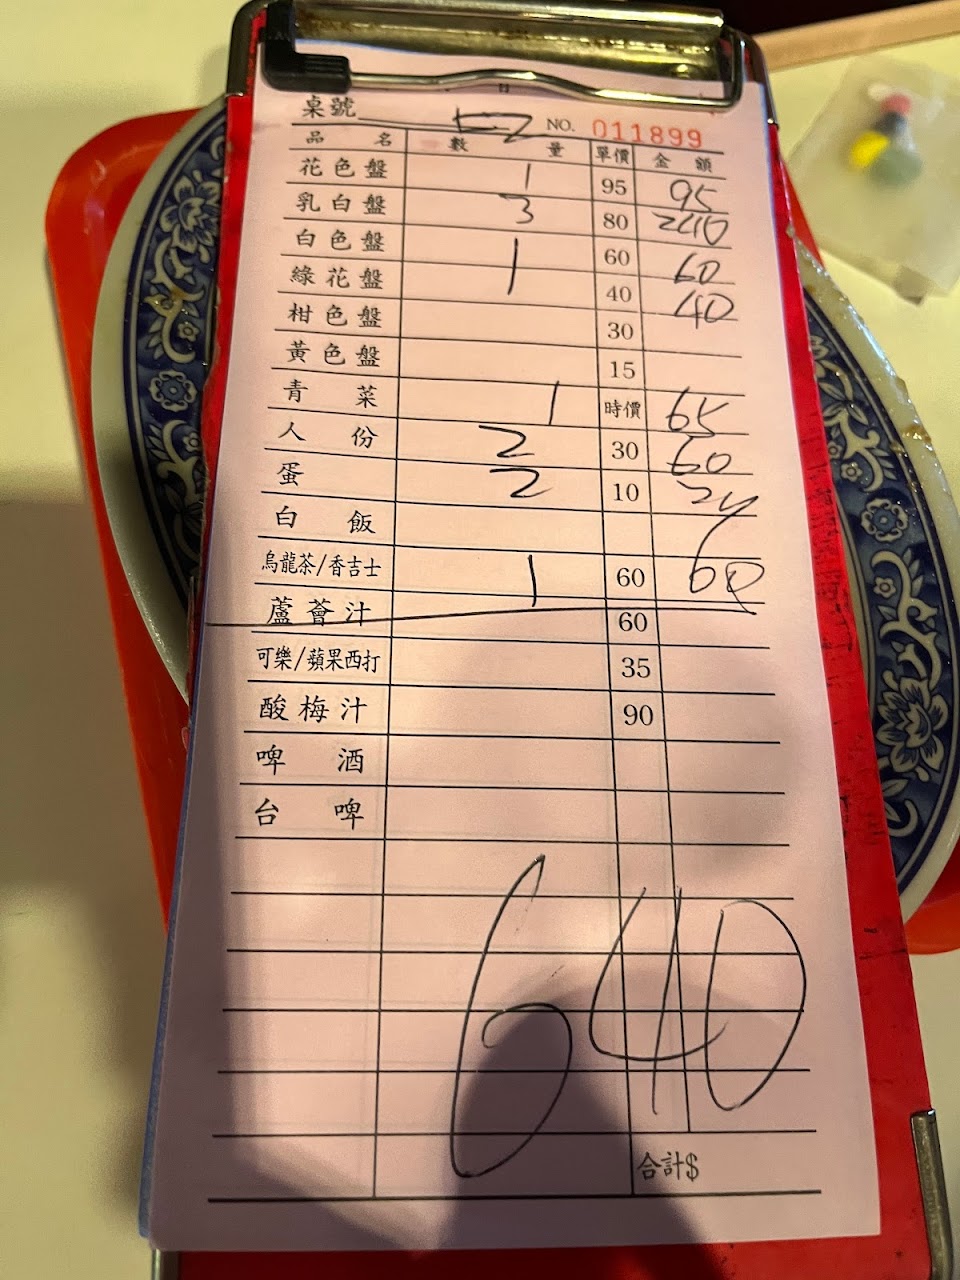 桌號 NO. 011899
品名 數量 單價 金額
花色盤 1 95 95
乳白盤 3 80 240
白色盤 1 60 60
綠花盤 40 40
柑色盤 30
黃色盤 15
青菜 1 時價 65
人份 2 30 60
蛋 2 10 20
白飯
烏龍茶/香吉士 1 60 60
蘆薈汁 60
可樂/蘋果西打 35
酸梅汁 90
啤酒
台啤
640
合計$